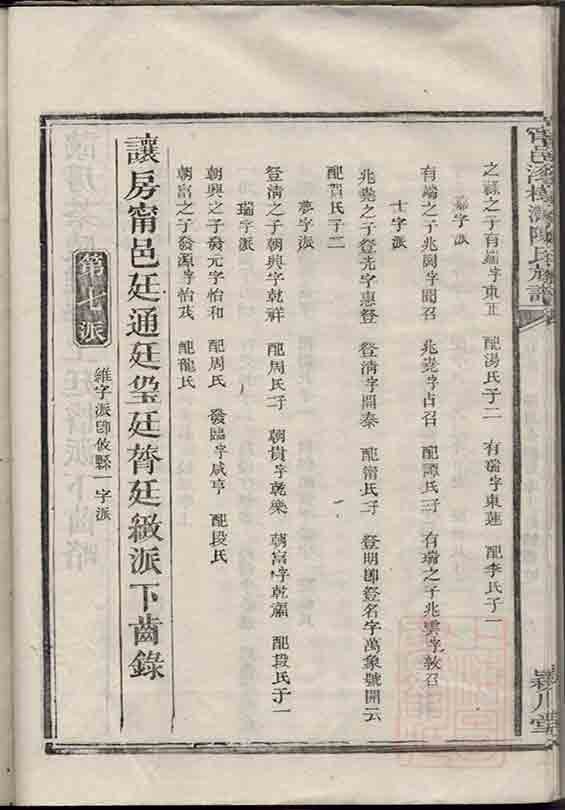 甯邑滌樹灣陳氏族譜
潁川堂
之祿之子有瑞字東正 配湯氏子二 有瑞字東蓮 配李氏子一
嘉字派
有瑞之子兆周字聞召 兆堯字占召 配譚氏子二 有瑞之子兆雲字敦召
士字派
兆堯之子登先字惠登 登淸字開泰 配甯氏子二 登明卽登名字萬象號開云
配賀氏子二
夢字派
登淸之子朝興字乾祥 配周氏子二 朝貴字乾樂 朝富字乾肅 配段氏子一
瑞字派
朝興之子發元字怡和 配周氏 發臨字咸亨 配段氏
朝富之子發源字怡茂 配龍氏
讓房甯邑廷通廷瑩廷膂廷級派下齒錄
第七派
維字派卽攸縣一字派